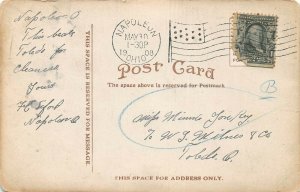 Napoleon O
This beats
Toledo for
cleaness
Yours
Napoleon O
THIS SPACE IS RESERVED FOR MESSAGE
NAPOLEON
MAY 30
1-30P
1908
OHIO
Post Card
The space above is reserved for Postmark
Miss Minnie
To W. J. Milner & Co
Toledo, O.
B
THIS SPACE FOR ADDRESS ONLY